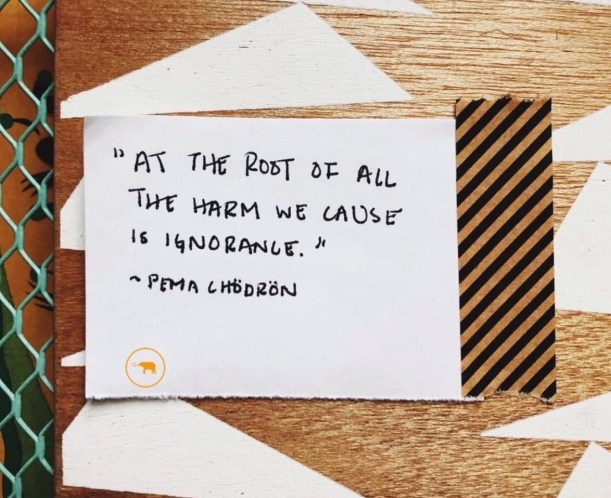 " AT THE ROOT OF ALL
THE HARM WE CAUSE
IS IGNORANCE. "
~ PEMA CHÖDRÖN